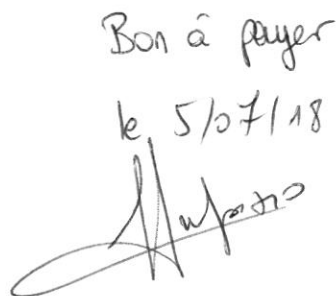 Bon à payer
le 5/07/18